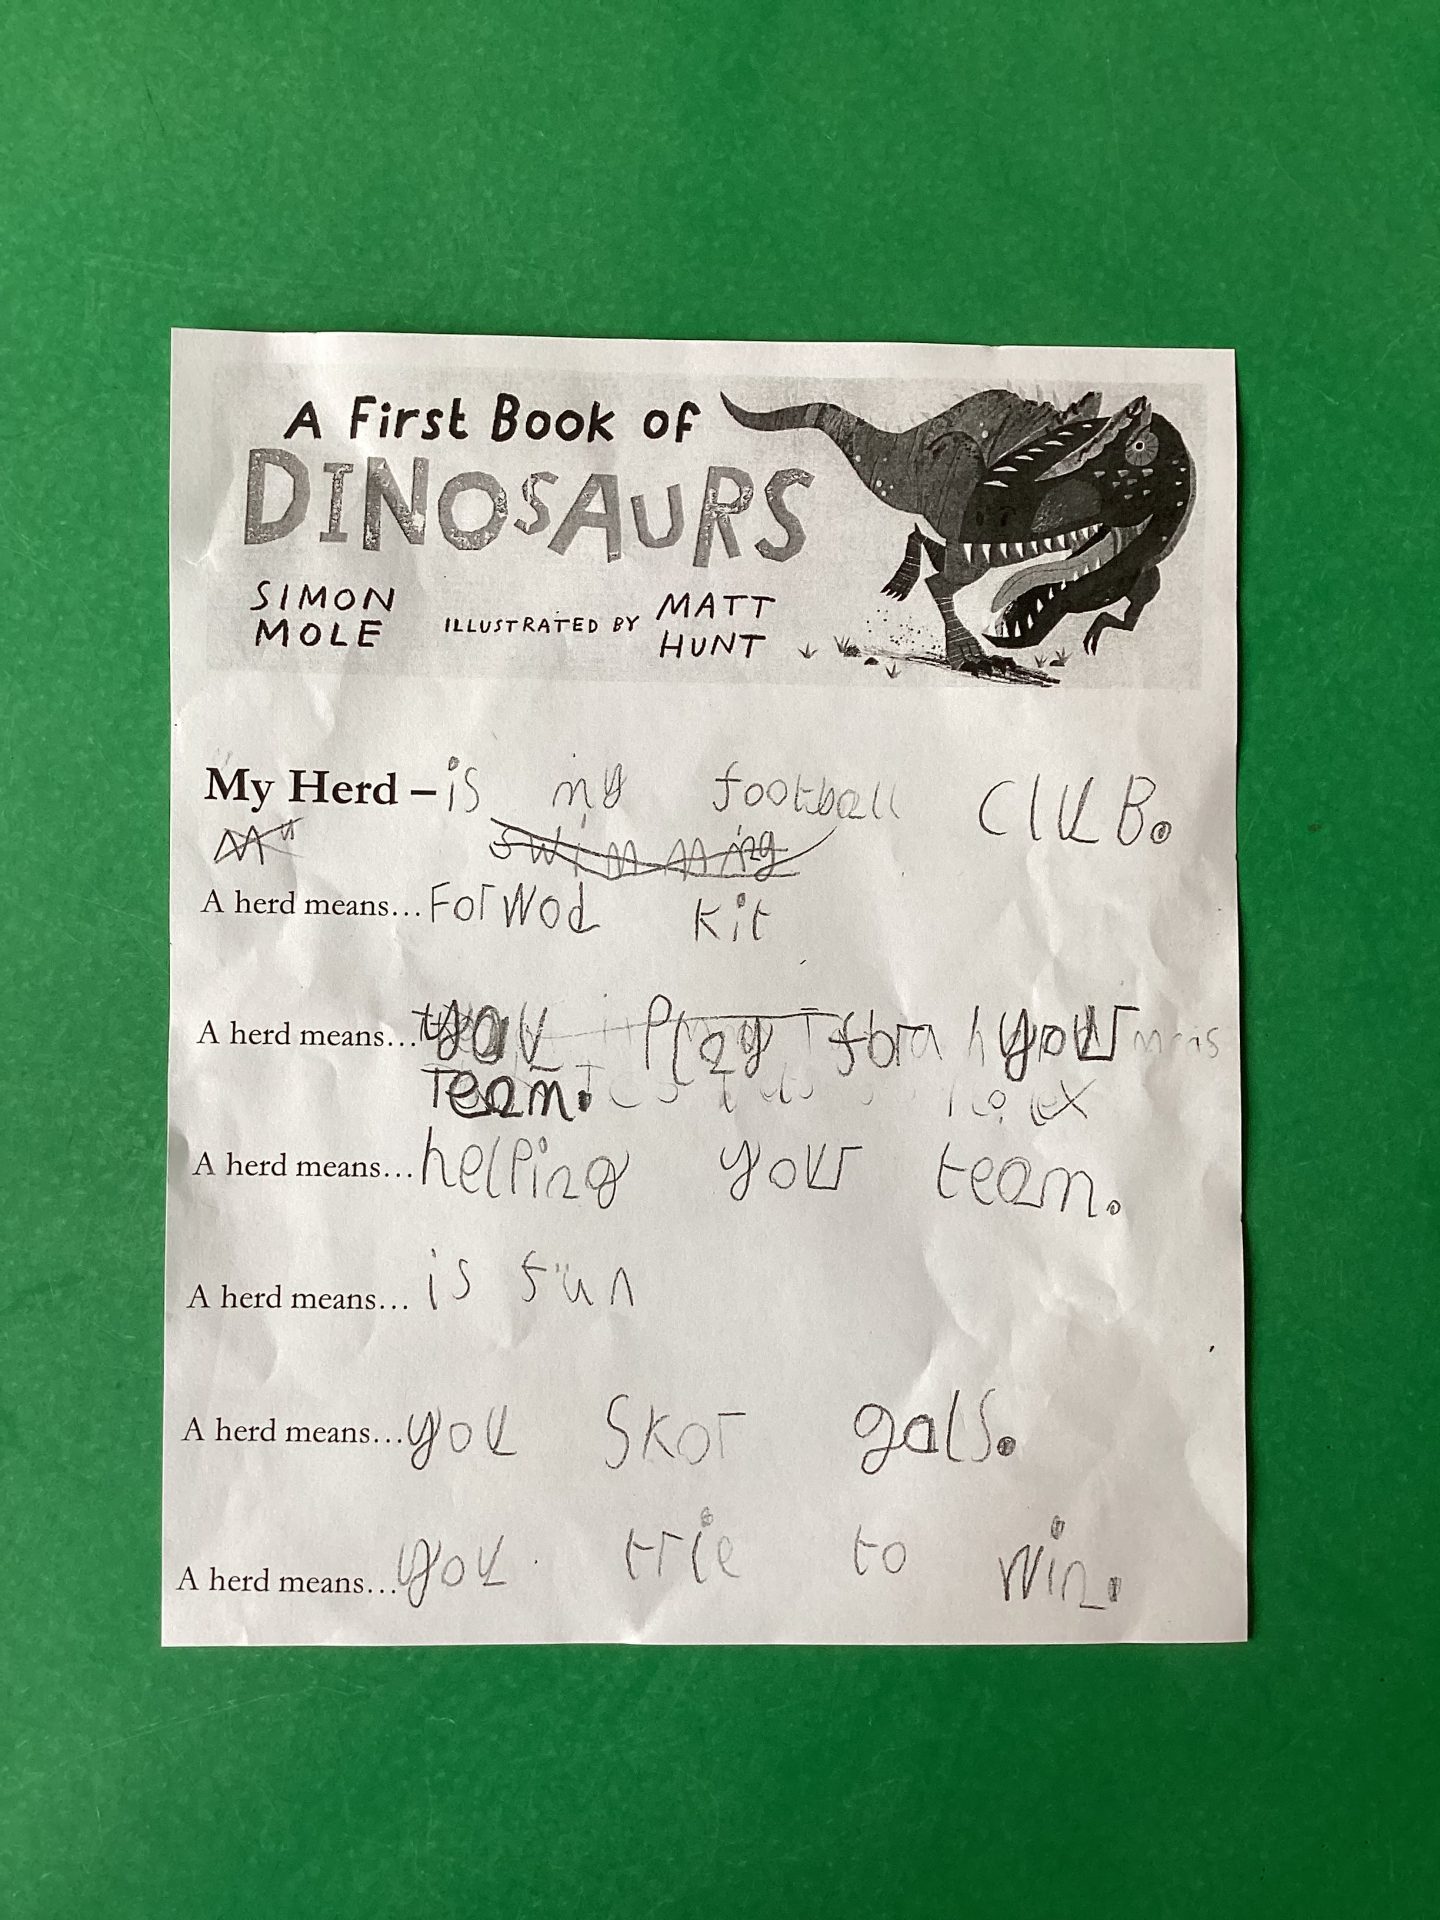 A First Book of
DINOSAURS
SIMON MOLE
ILLUSTRATED BY MATT HUNT
My Herd – is my football ClUB.
swimming
A herd means... Forwod kit
A herd means... you Play for your
Team.
A herd means... helping your team.
A herd means... is fun
A herd means... you Skor gals.
A herd means... you trie to win.